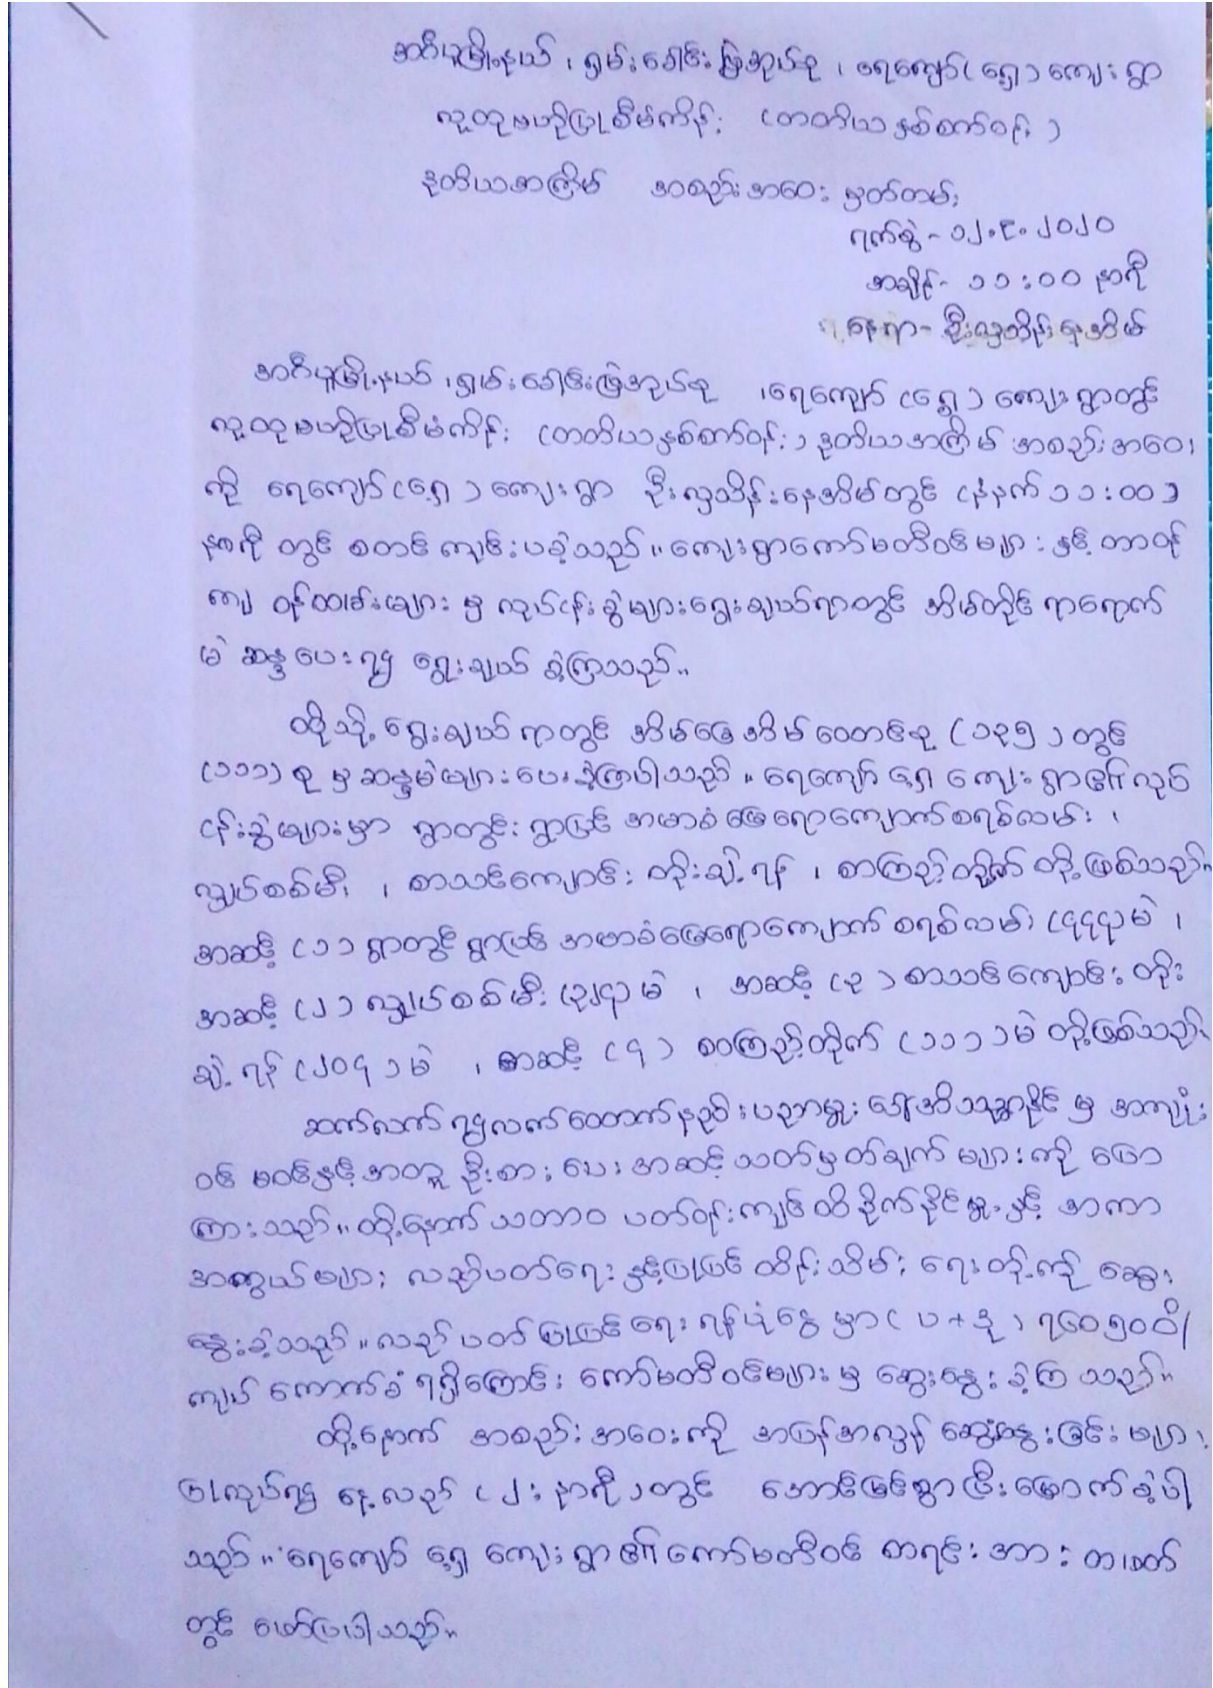 အင်္ဂပူမြို့နယ် ၊ ရှမ်းခေါင်းမြဲအုပ်စု ၊ ရေကျော်(ရှေ့)ကျေးရွာ
လူထုဗဟိုပြုစီမံကိန်း (တတိယနှစ်စက်ဝန်း)
ဒုတိယအကြိမ် အစည်းအဝေး မှတ်တမ်း
ရက်စွဲ - ၁၂.၉.၂၀၂၀
အချိန် - ၁၁:၀၀ နာရီ
နေရာ - ဦးလှထိန်နေအိမ်
ရှမ်းခေါင်းမြဲအုပ်စု ၊ရေကျော် (ရှေ့) ကျေးရွာတွင်
လူထုဗဟိုပြုစီမံကိန်း (တတိယနှစ်စက်ဝန်း) ဒုတိယအကြိမ် အစည်းအဝေး
ကို ရေကျော်(ရှေ့)ကျေးရွာ ဦးလှထိန်နေအိမ်တွင် (နံနက်၁၁:၀၀)
နာရီ တွင် စတင်ကျင်းပခဲ့သည်။ ကျေးရွာကော်မတီဝင်များ နှင့် တာဝန်
ကျ ဝန်ထမ်းများ မှ လုပ်ငန်းခွဲများရွေးချယ်ရာတွင် အိမ်တိုင် ရာရောက်
မဲ ဆန္ဒပေး၍ ရွေးချယ် ခဲ့ကြသည်။
ထိုသို့ ရွေးချယ်ရာတွင် အိမ်ခြေ အိမ်ထောင်စု (၁၃၅) တွင်
(၁၁၁) စု မှ ဆန္ဒမဲများ ပေးခဲ့ကြပါသည်။ ရေကျော် ရှေ့ ကျေးရွာ၏ လုပ်
ငန်းခွဲများမှာ ရွာတွင်း ရွာပြင် အမာခံမြေရောကျောက်စရစ်လမ်း ၊
လျှပ်စစ်မီး ၊ စာသင်ကျောင်း တိုးချဲ့ရန် ၊ စာကြည့်တိုက် တို့ဖြစ်သည်။
အဆင့် (၁) ရွာတွင်းရွာပြင် အမာခံမြေရောကျောက်စရစ်လမ်း (၄၄၄)မဲ ၊
အဆင့် (၂) လျှပ်စစ်မီး (၃၂၄)မဲ ၊ အဆင့် (၃) စာသင်ကျောင်း တိုး
ချဲ့ရန် (၂၀၄)မဲ ၊ အဆင့် (၄) စာကြည့်တိုက် (၁၁၁)မဲ တို့ဖြစ်သည်။
ဆက်လက်၍ လက်ထောက်နည်းပညာမှူး မှ အကျုံး
ဝင် မဝင်နှင့် အတူ ဦးစားပေး အဆင့်သတ်မှတ်ချက် များကို ပြော
ကြားသည်။ ထို့နောက် သဘာဝ ပတ်ဝန်းကျင် ထိခိုက်နိုင်မှု နှင့် အကာ
အကွယ်များ လည်ပတ်ရေး နှင့်ပြုပြင် ထိန်းသိမ်း ရေးတို့ကို ဆွေး
နွေးခဲ့သည်။ လည်ပတ်ပြုပြင်ရေး ရန်ပုံငွေ မှာ (ပ+ဒု)
ကျပ် ကောက်ခံ ရရှိကြောင်း ကော်မတီဝင်များ မှ ဆွေးနွေး ခဲ့ကြ သည်။
ထို့နောက် အစည်းအဝေးကို အပြန်အလှန် ဆွေးနွေးခြင်း များ
ပြုလုပ်၍ နေ့လည် (၂ နာရီ)တွင် အောင်မြင်စွာ ပြီးမြောက်ခဲ့ပါ
သည်။ ရေကျော် ရှေ့ ကျေးရွာ၏ ကော်မတီဝင် စာရင်းအား တဖက်
တွင် ဖော်ပြပါသည်။